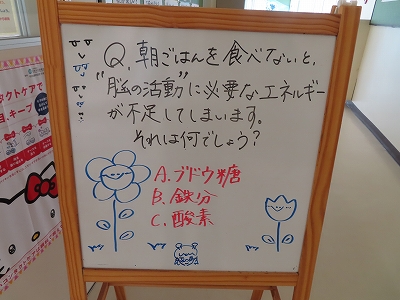 Q. 朝ごはんを食べないと、
"脳の活動"に必要なエネルギー
が不足してしまいます。
それは何でしょう？
A. ブドウ糖
B. 鉄分
C. 酸素